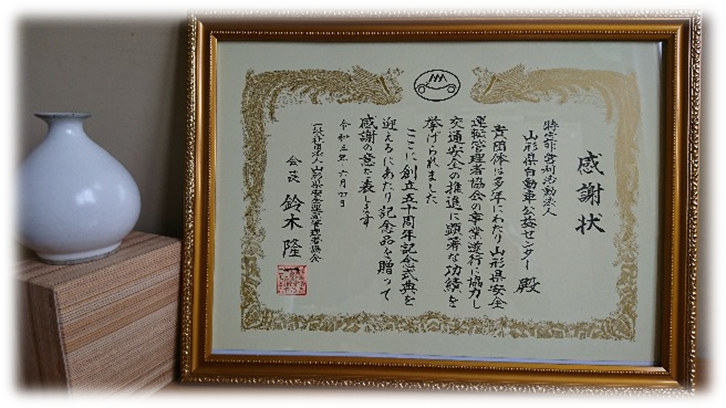 感謝状
特定非営利活動法人
山形県自動車公益センター 殿
貴団体は多年にわたり山形県安全
運転管理者協会の事業遂行に協力し
交通安全の推進に顕著な功績を
挙げられました
ここに創立五十周年記念式典を
迎えるにあたり記念品を贈って
感謝の意を表します
令和三年六月四日
一般社団法人山形県安全運転管理者協会
会長 鈴木 隆